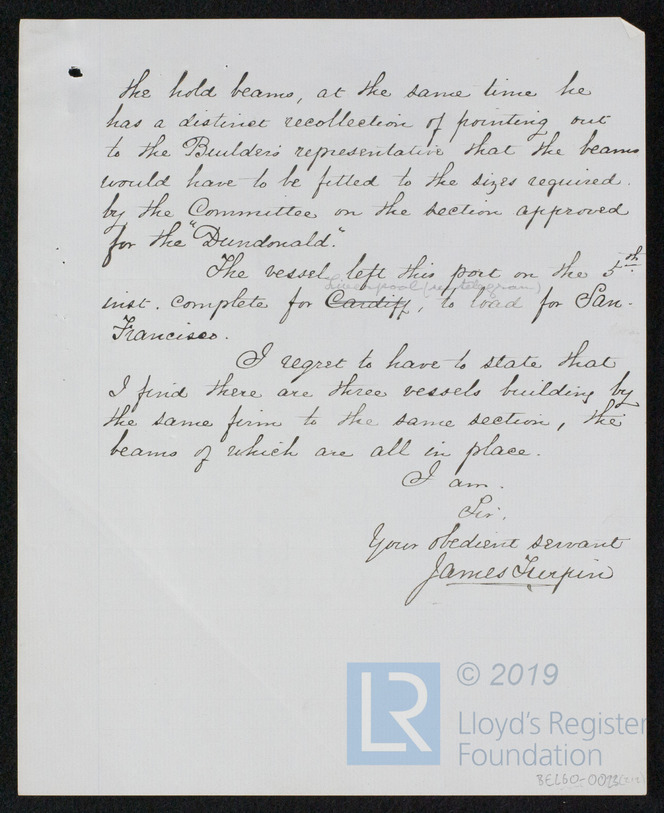 the hold beams, at the same time he
has a distinct recollection of pointing out
to the Builders representative that the beams
would have to be fitted to the sizes required.
by the Committee on the section approved
for the "Dundonald."
The vessel left this port on the 5th
Liverpool (telegram)
inst. complete for Cardiff, to load for San-
Francisco.
I regret to have to state that
I find there are three vessels building by
the same firm to the same section, the
beams of which are all in place.
I am.
Sir,
Your obedient servant
James Turpin
LR
© 2019
Lloyd's Register
Foundation